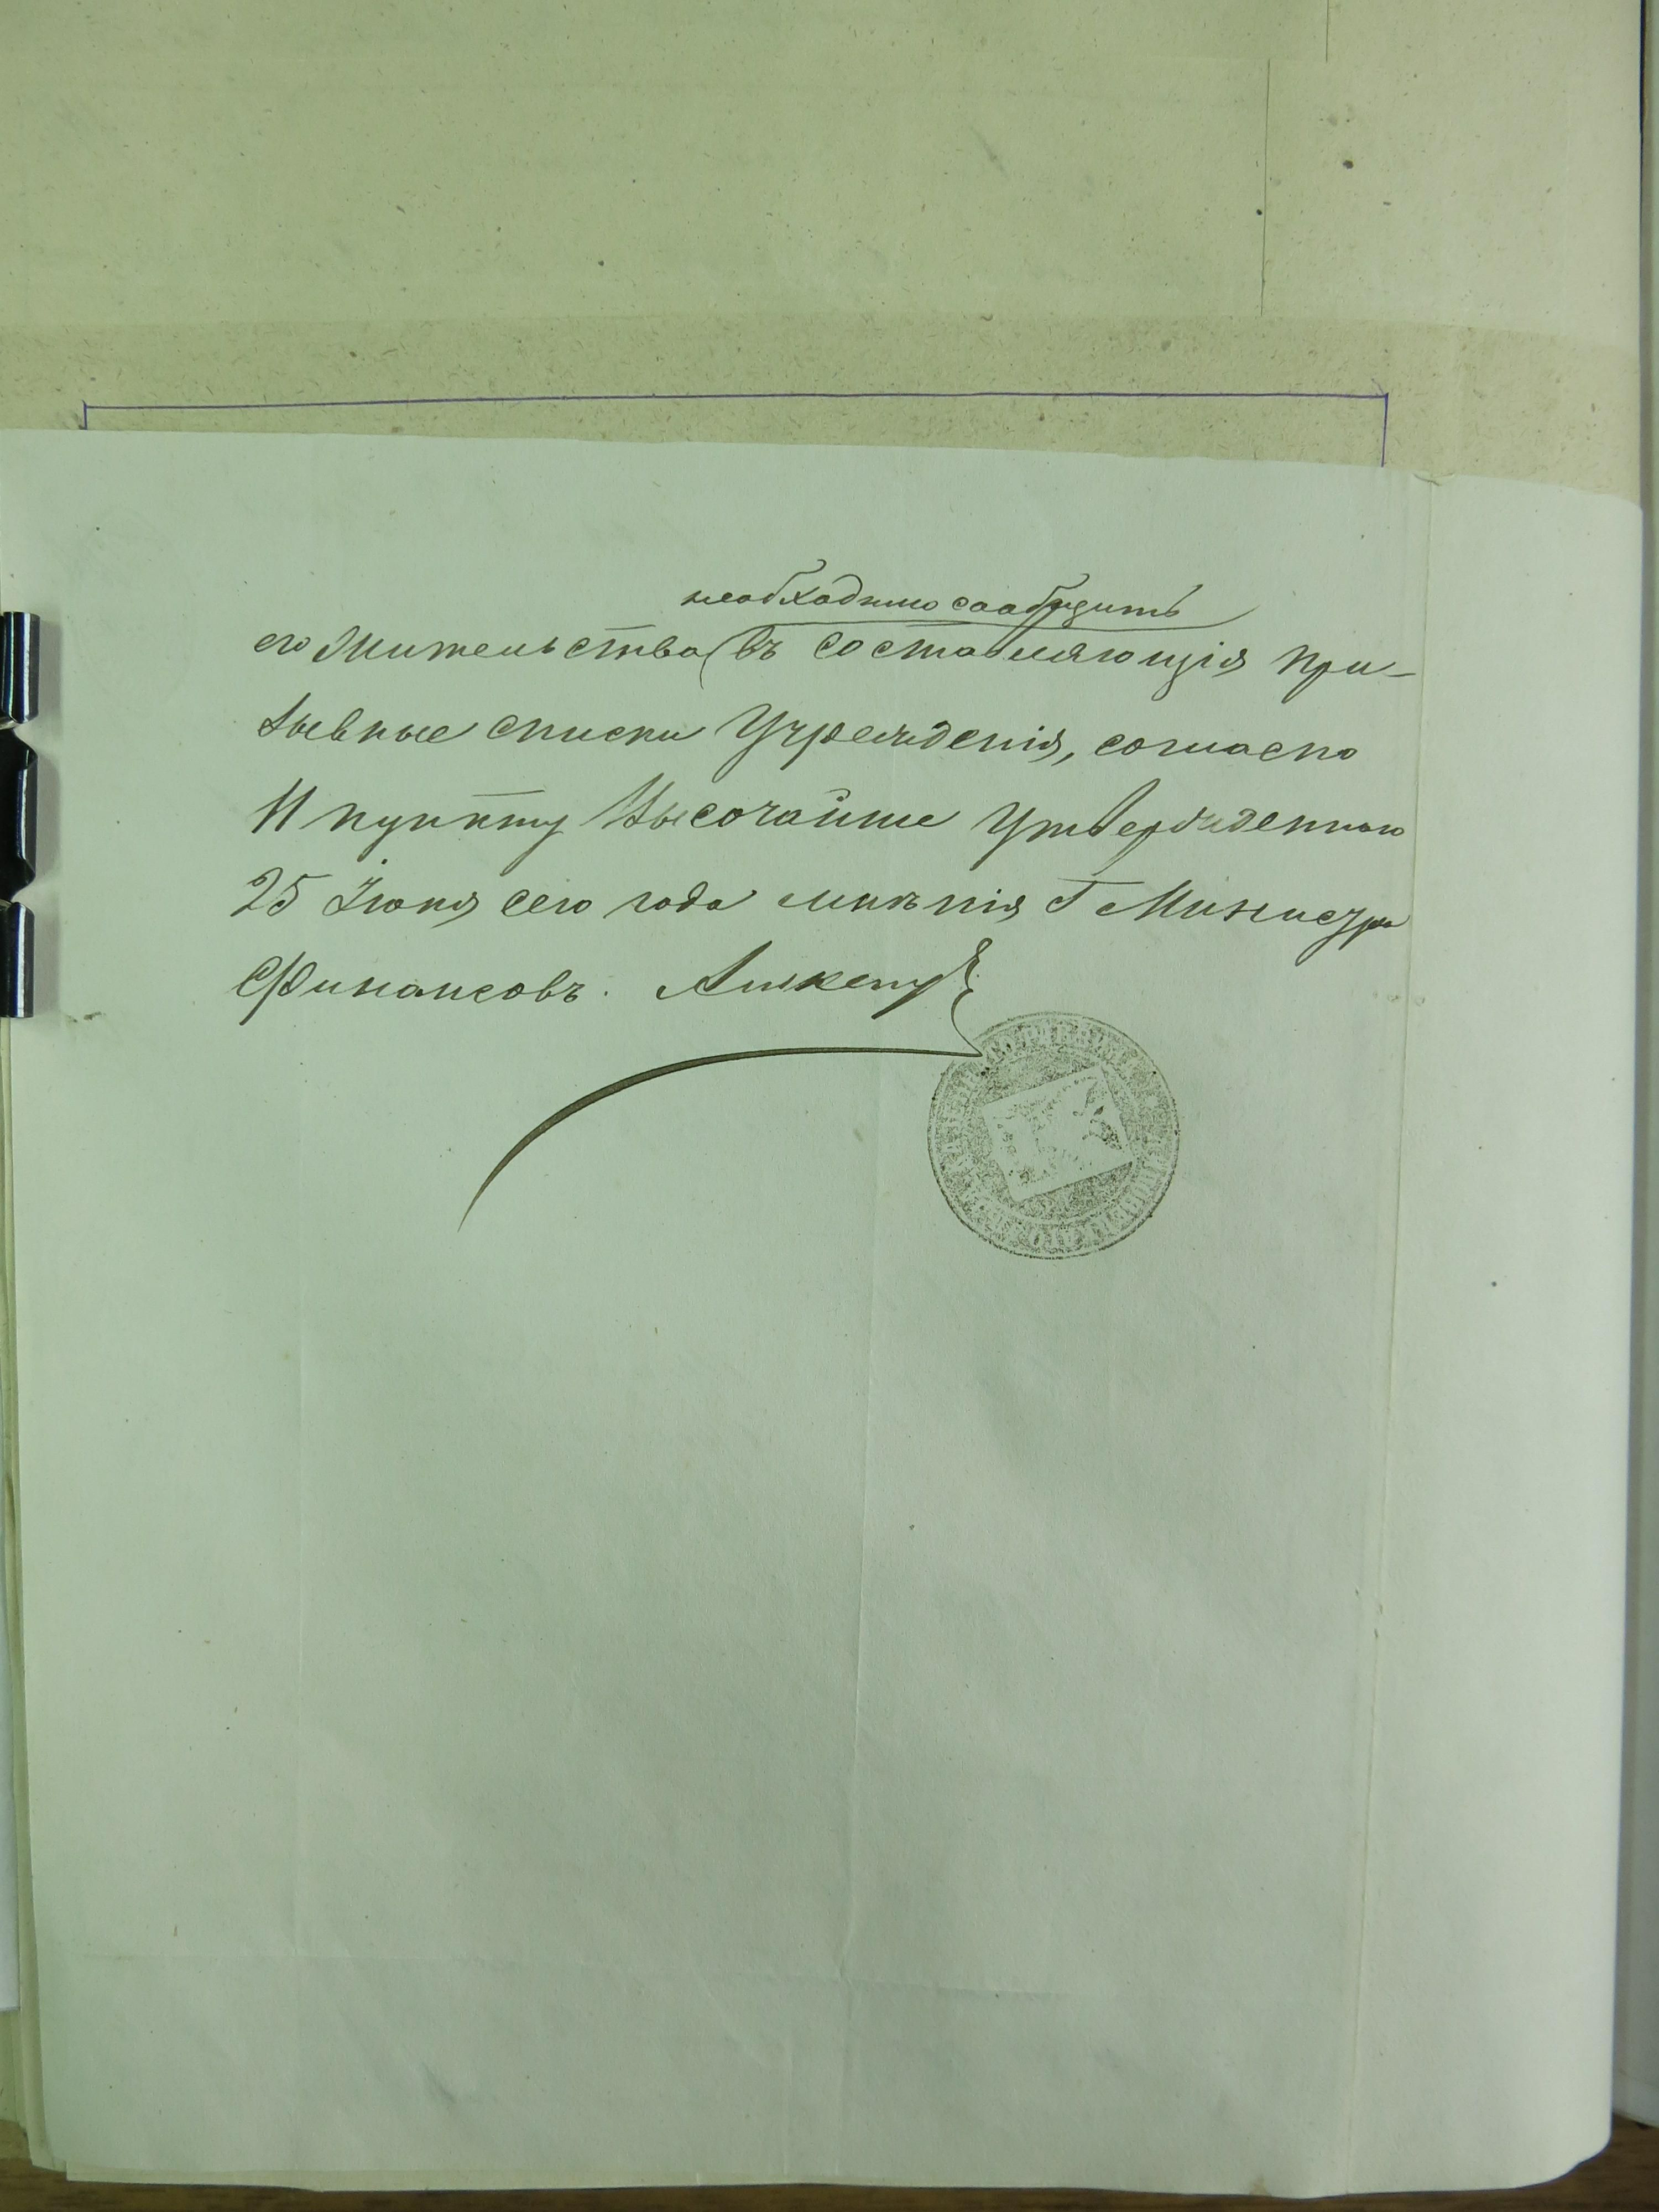 необходимо сообщить
его жительства въ составляющія при-
зывные списки Учрежденія, согласно
11 пункту Высочайше Утвержденнаго
25 Іюня сего года мнѣнія Г Министра
Финансовъ.